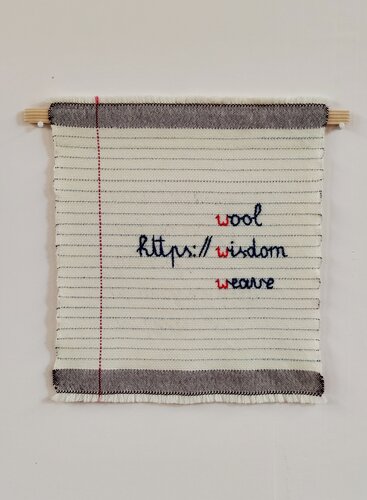 wool
https://wisdom
weave